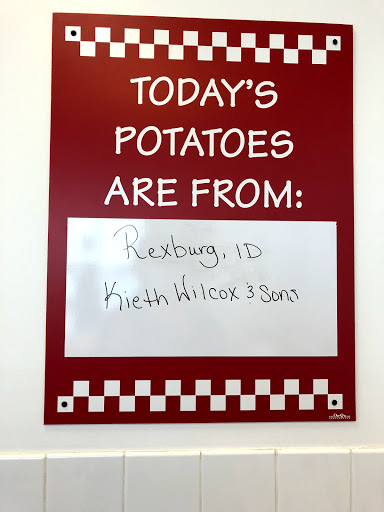 TODAY'S
POTATOES
ARE FROM:
Rexburg, ID
Kieth Wilcox & Sons